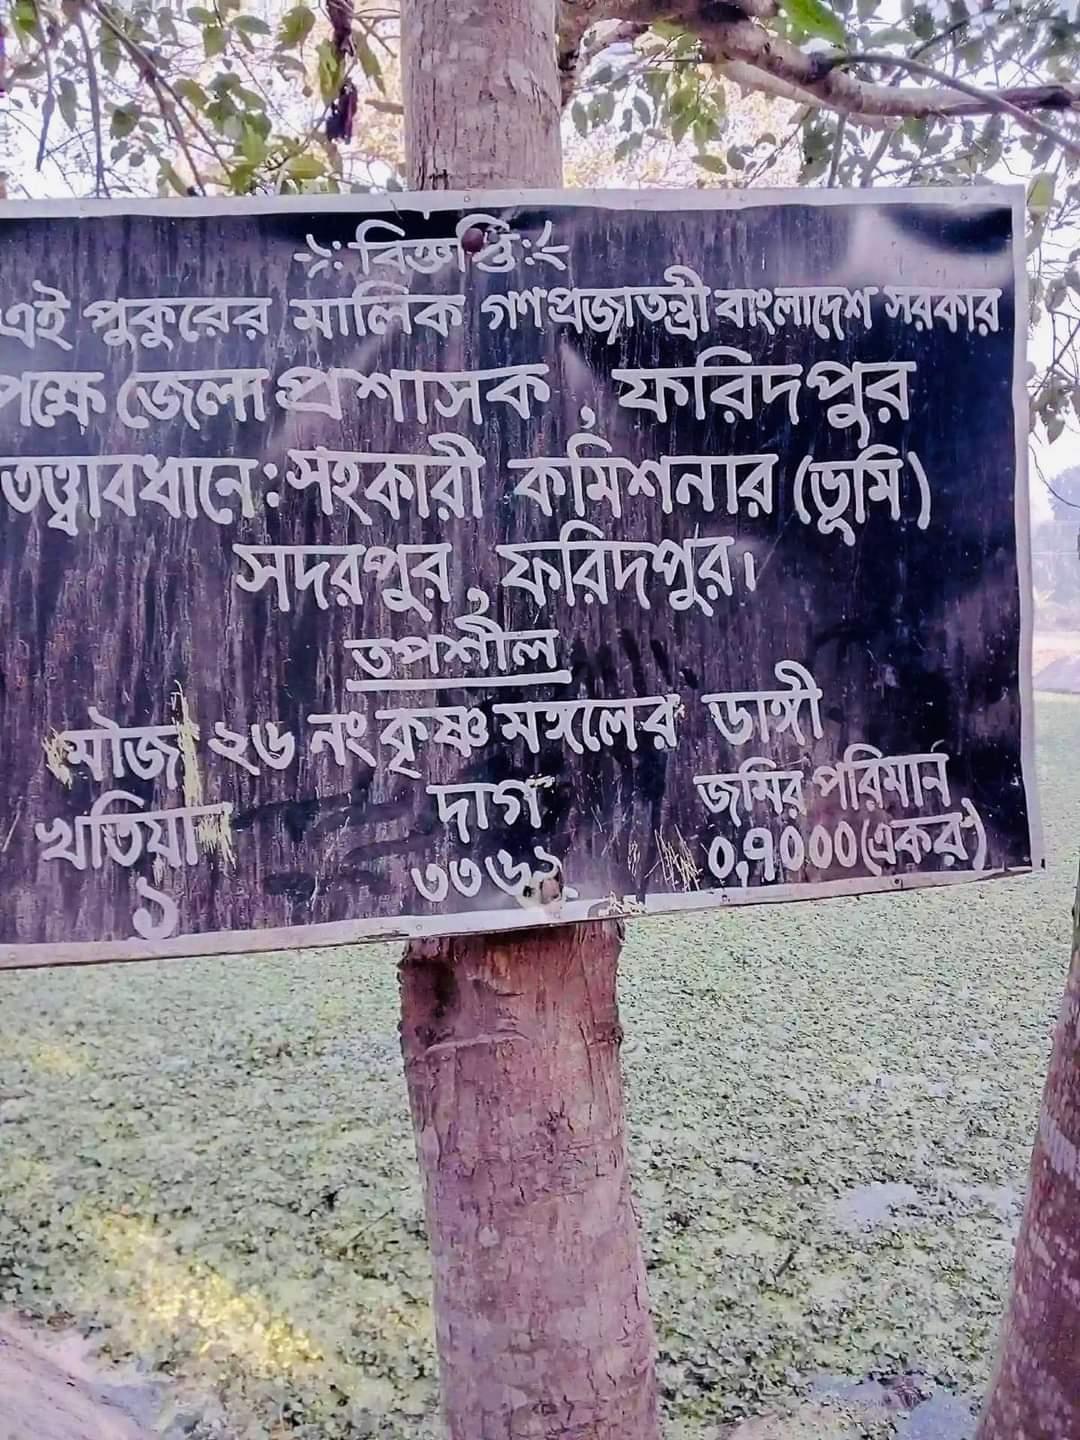 বিজ্ঞপ্তি
এই পুকুরের মালিক গণপ্রজাতন্ত্রী বাংলাদেশ সরকার
পক্ষে জেলা প্রশাসক, ফরিদপুর
তত্ত্বাবধানে: সহকারী কমিশনার (ভূমি)
সদরপুর, ফরিদপুর।
তপশীল
মৌজা ২৬ নং কৃষ্ণ মঙ্গলের ডাঙ্গী
খতিয়ান দাগ জমির পরিমান
১ ৩৩৬২ ০.৭০০০ (একর)